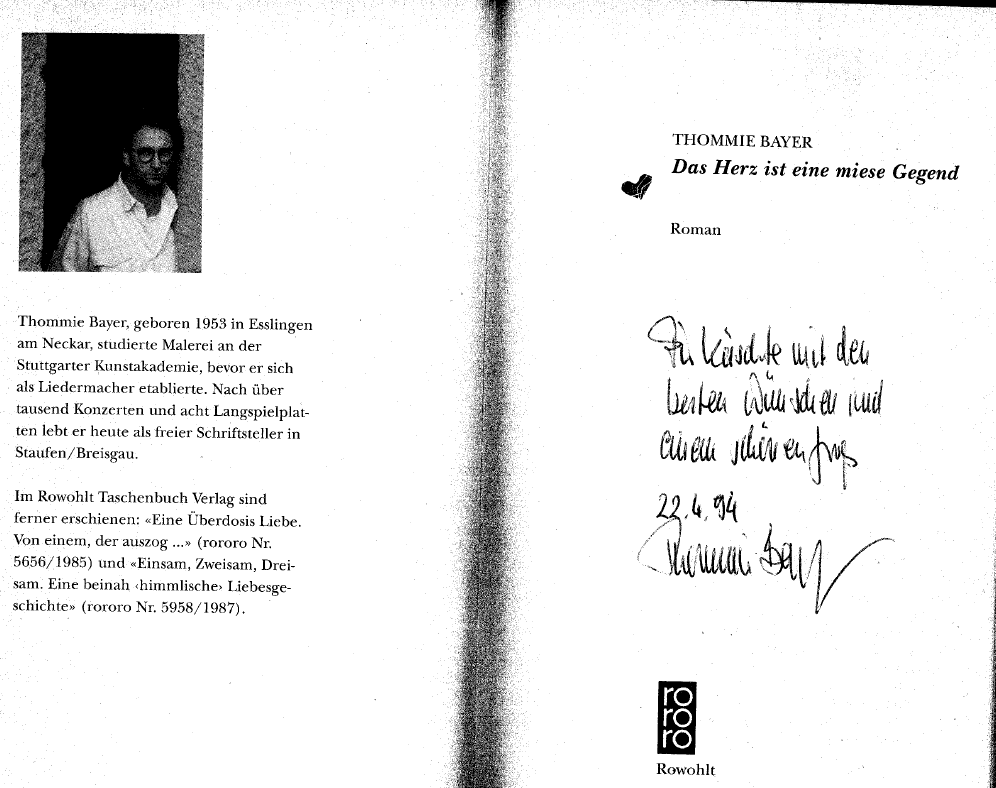 Thommie Bayer, geboren 1953 in Esslingen
am Neckar, studierte Malerei an der
Stuttgarter Kunstakademie, bevor er sich
als Liedermacher etablierte. Nach über
tausend Konzerten und acht Langspielplat-
ten lebt er heute als freier Schriftsteller in
Staufen/Breisgau.
Im Rowohlt Taschenbuch Verlag sind
ferner erschienen: «Eine Überdosis Liebe.
Von einem, der auszog ...» (rororo Nr.
5656/1985) und «Einsam, Zweisam, Drei-
sam. Eine beinah ‹himmlische› Liebesge-
schichte» (rororo Nr. 5958/1987).
THOMMIE BAYER
Das Herz ist eine miese Gegend
Roman
Für mit den
besten Wünschen und
einem schönen
22.4.94
Thommie Bayer
ro
ro
ro
Rowohlt